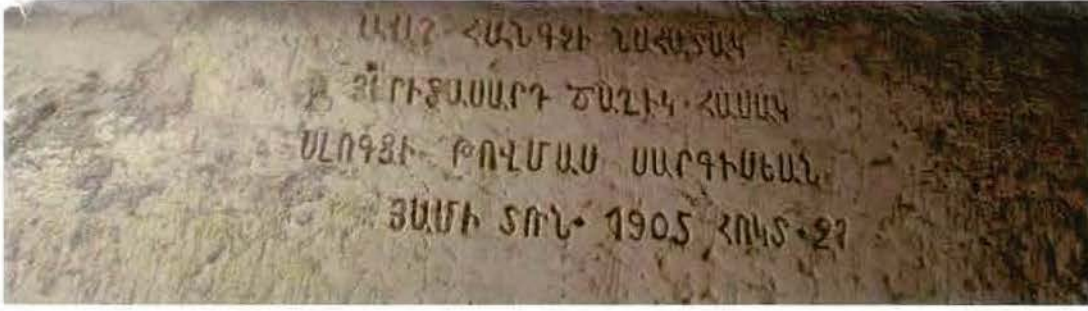 ԱՎԱՂ ՀԱՆԳՉԻ ՆԱՀԱՏԱԿ
ԵՐԻՏԱՍԱՐԴ ԾԱՂԻԿ ՀԱՍԱԿ
ՍԼՈԳՑԻ ԹՈՎՄԱՍ ՍԱՐԳԻՍԵԱՆ
ՅԱՄԻ ՏՈՒՆ 1905 ՀՈԿՏ 27